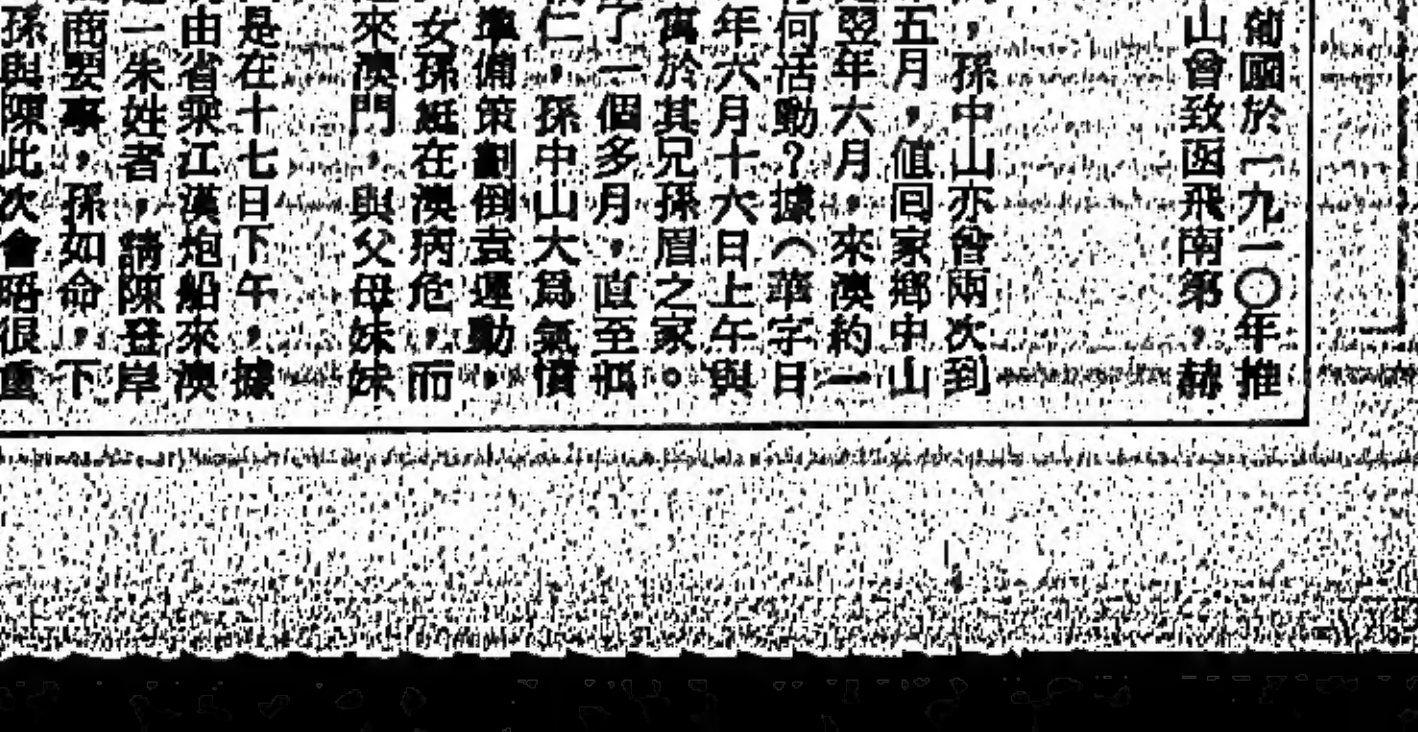 葡國於一九一〇年推
山曾致函飛南第，赫
，孫中山亦曾兩次到
五月，值回家鄉中山
翌年六月，來澳約一
何活動？據︿華字日
年六月十六日上午與
寓於其兄孫眉之家。
了一個多月，直至孤
仁，孫中山大爲氣憤
準備策劃倒袁運動，
女孫娫在澳病危，而
來澳門，與父母妹妹
是在十七日下午，據
由省乘江漢炮船來澳
一朱姓者，請陳登岸
商要事，孫如命，下
孫與陳此次會晤很